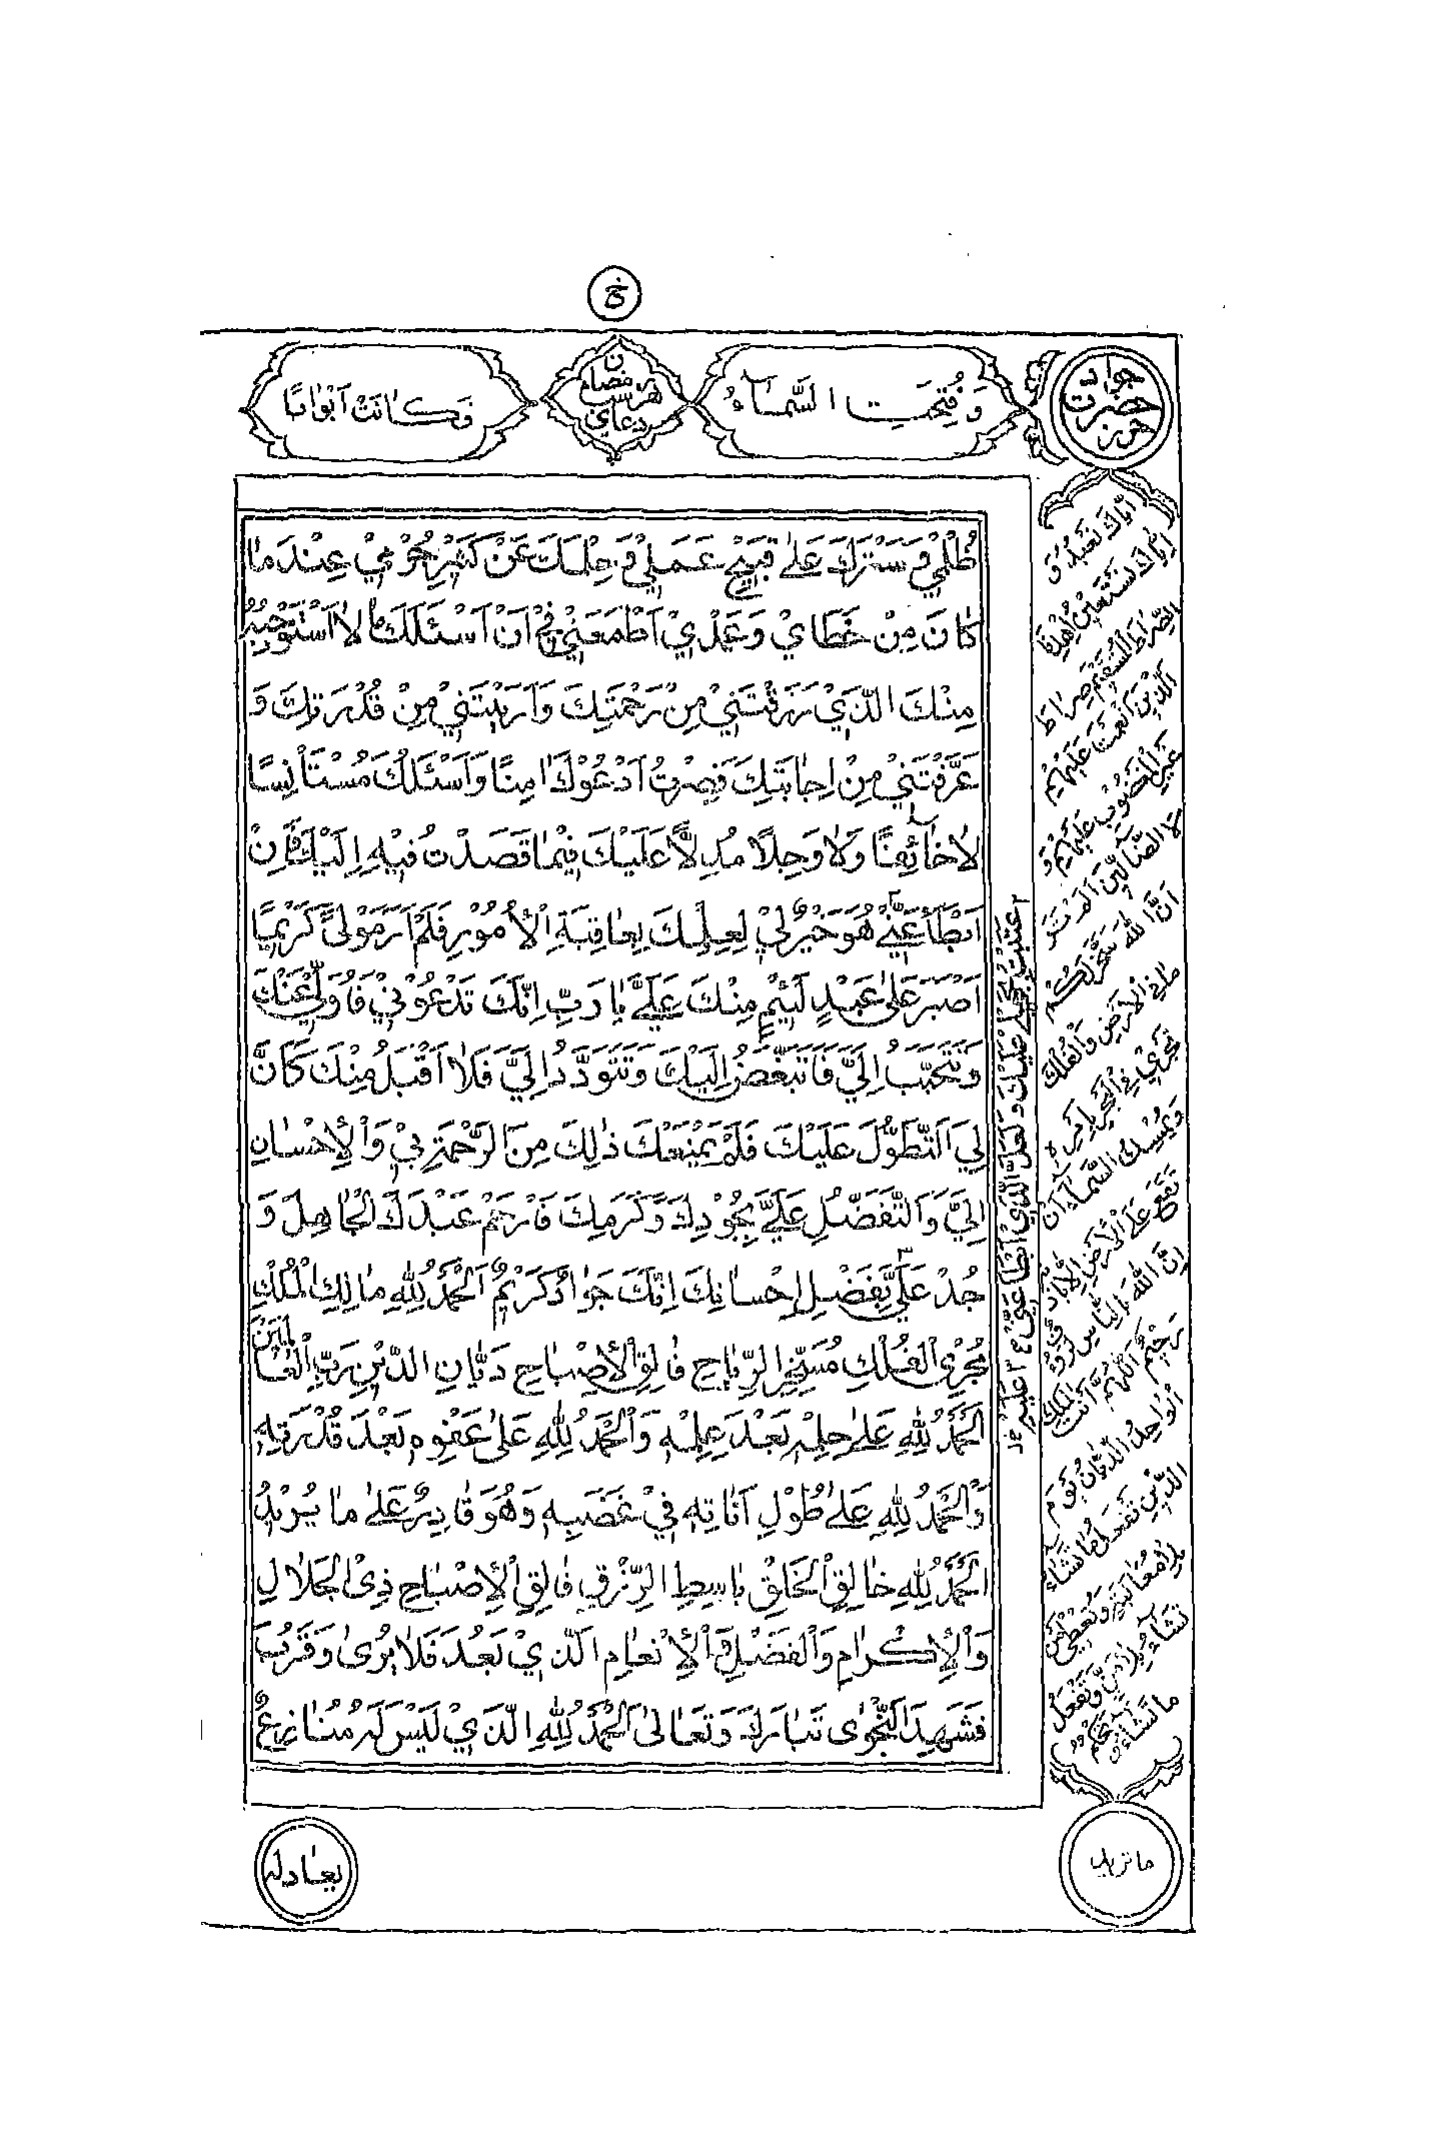 وَفُتِحَتِ السَّمَاءُ
دعای
هر شب
رمضان
فَكَانَتْ أَبْوَابًا
حرز
حضرت
جواد
ظُلْمِي وَسَتْرَكَ عَلَى قَبِيحِ عَمَلِي وَحِلْمَكَ عَنْ كَثِيرِ جُرْمِي عِنْدَمَا
كَانَ مِنْ خَطَايَ وَعَمْدِي أَطْمَعَنِي فِي أَنْ أَسْئَلَكَ مَا لَا أَسْتَوْجِبُهُ
مِنْكَ الَّذِي رَزَقْتَنِي مِنْ رَحْمَتِكَ وَأَرَيْتَنِي مِنْ قُدْرَتِكَ وَ
عَرَّفْتَنِي مِنْ إِجَابَتِكَ فَصِرْتُ أَدْعُوكَ آمِنًا وَأَسْئَلُكَ مُسْتَأْنِسًا
لَا خَائِفًا وَلَا وَجِلًا مُدِلًّا عَلَيْكَ فِيمَا قَصَدْتُ فِيهِ إِلَيْكَ فَإِنْ
أَبْطَأَ عَنِّي هُوَ خَيْرٌ لِي لِعِلْمِكَ بِعَاقِبَةِ الْأُمُورِ فَلَمْ أَرَ مَوْلًى كَرِيمًا
أَصْبَرَ عَلَى عَبْدٍ لَئِيمٍ مِنْكَ عَلَيَّ يَا رَبِّ إِنَّكَ تَدْعُونِي فَأُوَلِّي عَنْكَ
وَتَتَحَبَّبُ إِلَيَّ فَأَتَبَغَّضُ إِلَيْكَ وَتَتَوَدَّدُ إِلَيَّ فَلَا أَقْبَلُ مِنْكَ كَأَنَّ
لِيَ التَّطَوُّلَ عَلَيْكَ فَلَمْ يَمْنَعْكَ ذَلِكَ مِنَ الرَّحْمَةِ بِي وَالْإِحْسَانِ
إِلَيَّ وَالتَّفَضُّلِ عَلَيَّ بِجُودِكَ وَكَرَمِكَ فَارْحَمْ عَبْدَكَ الْجَاهِلَ وَ
جُدْ عَلَيَّ بِفَضْلِ إِحْسَانِكَ إِنَّكَ جَوَادٌ كَرِيمٌ الْحَمْدُ لِلّهِ مَالِكِ الْمُلْكِ
مُجْرِي الْفُلْكِ مُسَخِّرِ الرِّيَاحِ فَالِقِ الْإِصْبَاحِ دَيَّانِ الدِّينِ رَبِّ الْعَالَمِينَ
الْحَمْدُ لِلّهِ عَلَى حِلْمِهِ بَعْدَ عِلْمِهِ وَالْحَمْدُ لِلّهِ عَلَى عَفْوِهِ بَعْدَ قُدْرَتِهِ
وَالْحَمْدُ لِلّهِ عَلَى طُولِ أَنَاتِهِ فِي غَضَبِهِ وَهُوَ قَادِرٌ عَلَى مَا يُرِيدُ
الْحَمْدُ لِلّهِ خَالِقِ الْخَلْقِ بَاسِطِ الرِّزْقِ فَالِقِ الْإِصْبَاحِ ذِي الْجَلَالِ
وَالْإِكْرَامِ وَالْفَضْلِ وَالْإِنْعَامِ الَّذِي بَعُدَ فَلَا يُرَى وَقَرُبَ
فَشَهِدَ النَّجْوَى تَبَارَكَ وَتَعَالَى الْحَمْدُ لِلّهِ الَّذِي لَيْسَ لَهُ مُنَازِعٌ
يعادله
إِيَّاكَ نَعْبُدُ وَ
إِيَّاكَ نَسْتَعِينُ اهْدِنَا
الصِّرَاطَ الْمُسْتَقِيمَ صِرَاطَ
الَّذِينَ أَنْعَمْتَ عَلَيْهِمْ
غَيْرِ الْمَغْضُوبِ عَلَيْهِمْ وَ
لَا الضَّالِّينَ أَلَمْ تَرَ
أَنَّ اللَّهَ سَخَّرَ لَكُمْ
مَا فِي الْأَرْضِ وَالْفُلْكَ
تَجْرِي فِي الْبَحْرِ بِأَمْرِهِ
وَيُمْسِكُ السَّمَاءَ أَنْ
تَقَعَ عَلَى الْأَرْضِ إِلَّا بِإِذْنِهِ
إِنَّ اللَّهَ بِالنَّاسِ لَرَؤُوفٌ
رَحِيمٌ اللَّهُمَّ أَنْتَ الْمَلِكُ
الْوَاحِدُ الدَّيَّانُ يَوْمَ
الدِّينِ تَفْعَلُ مَا تَشَاءُ
بِلَا مُغَالَبَةٍ وَتُعْطِي مَنْ
تَشَاءُ بِلَا مَنٍّ وَتَفْعَلُ
مَا تَشَاءُ وَتَحْكُمُ
ما تريد